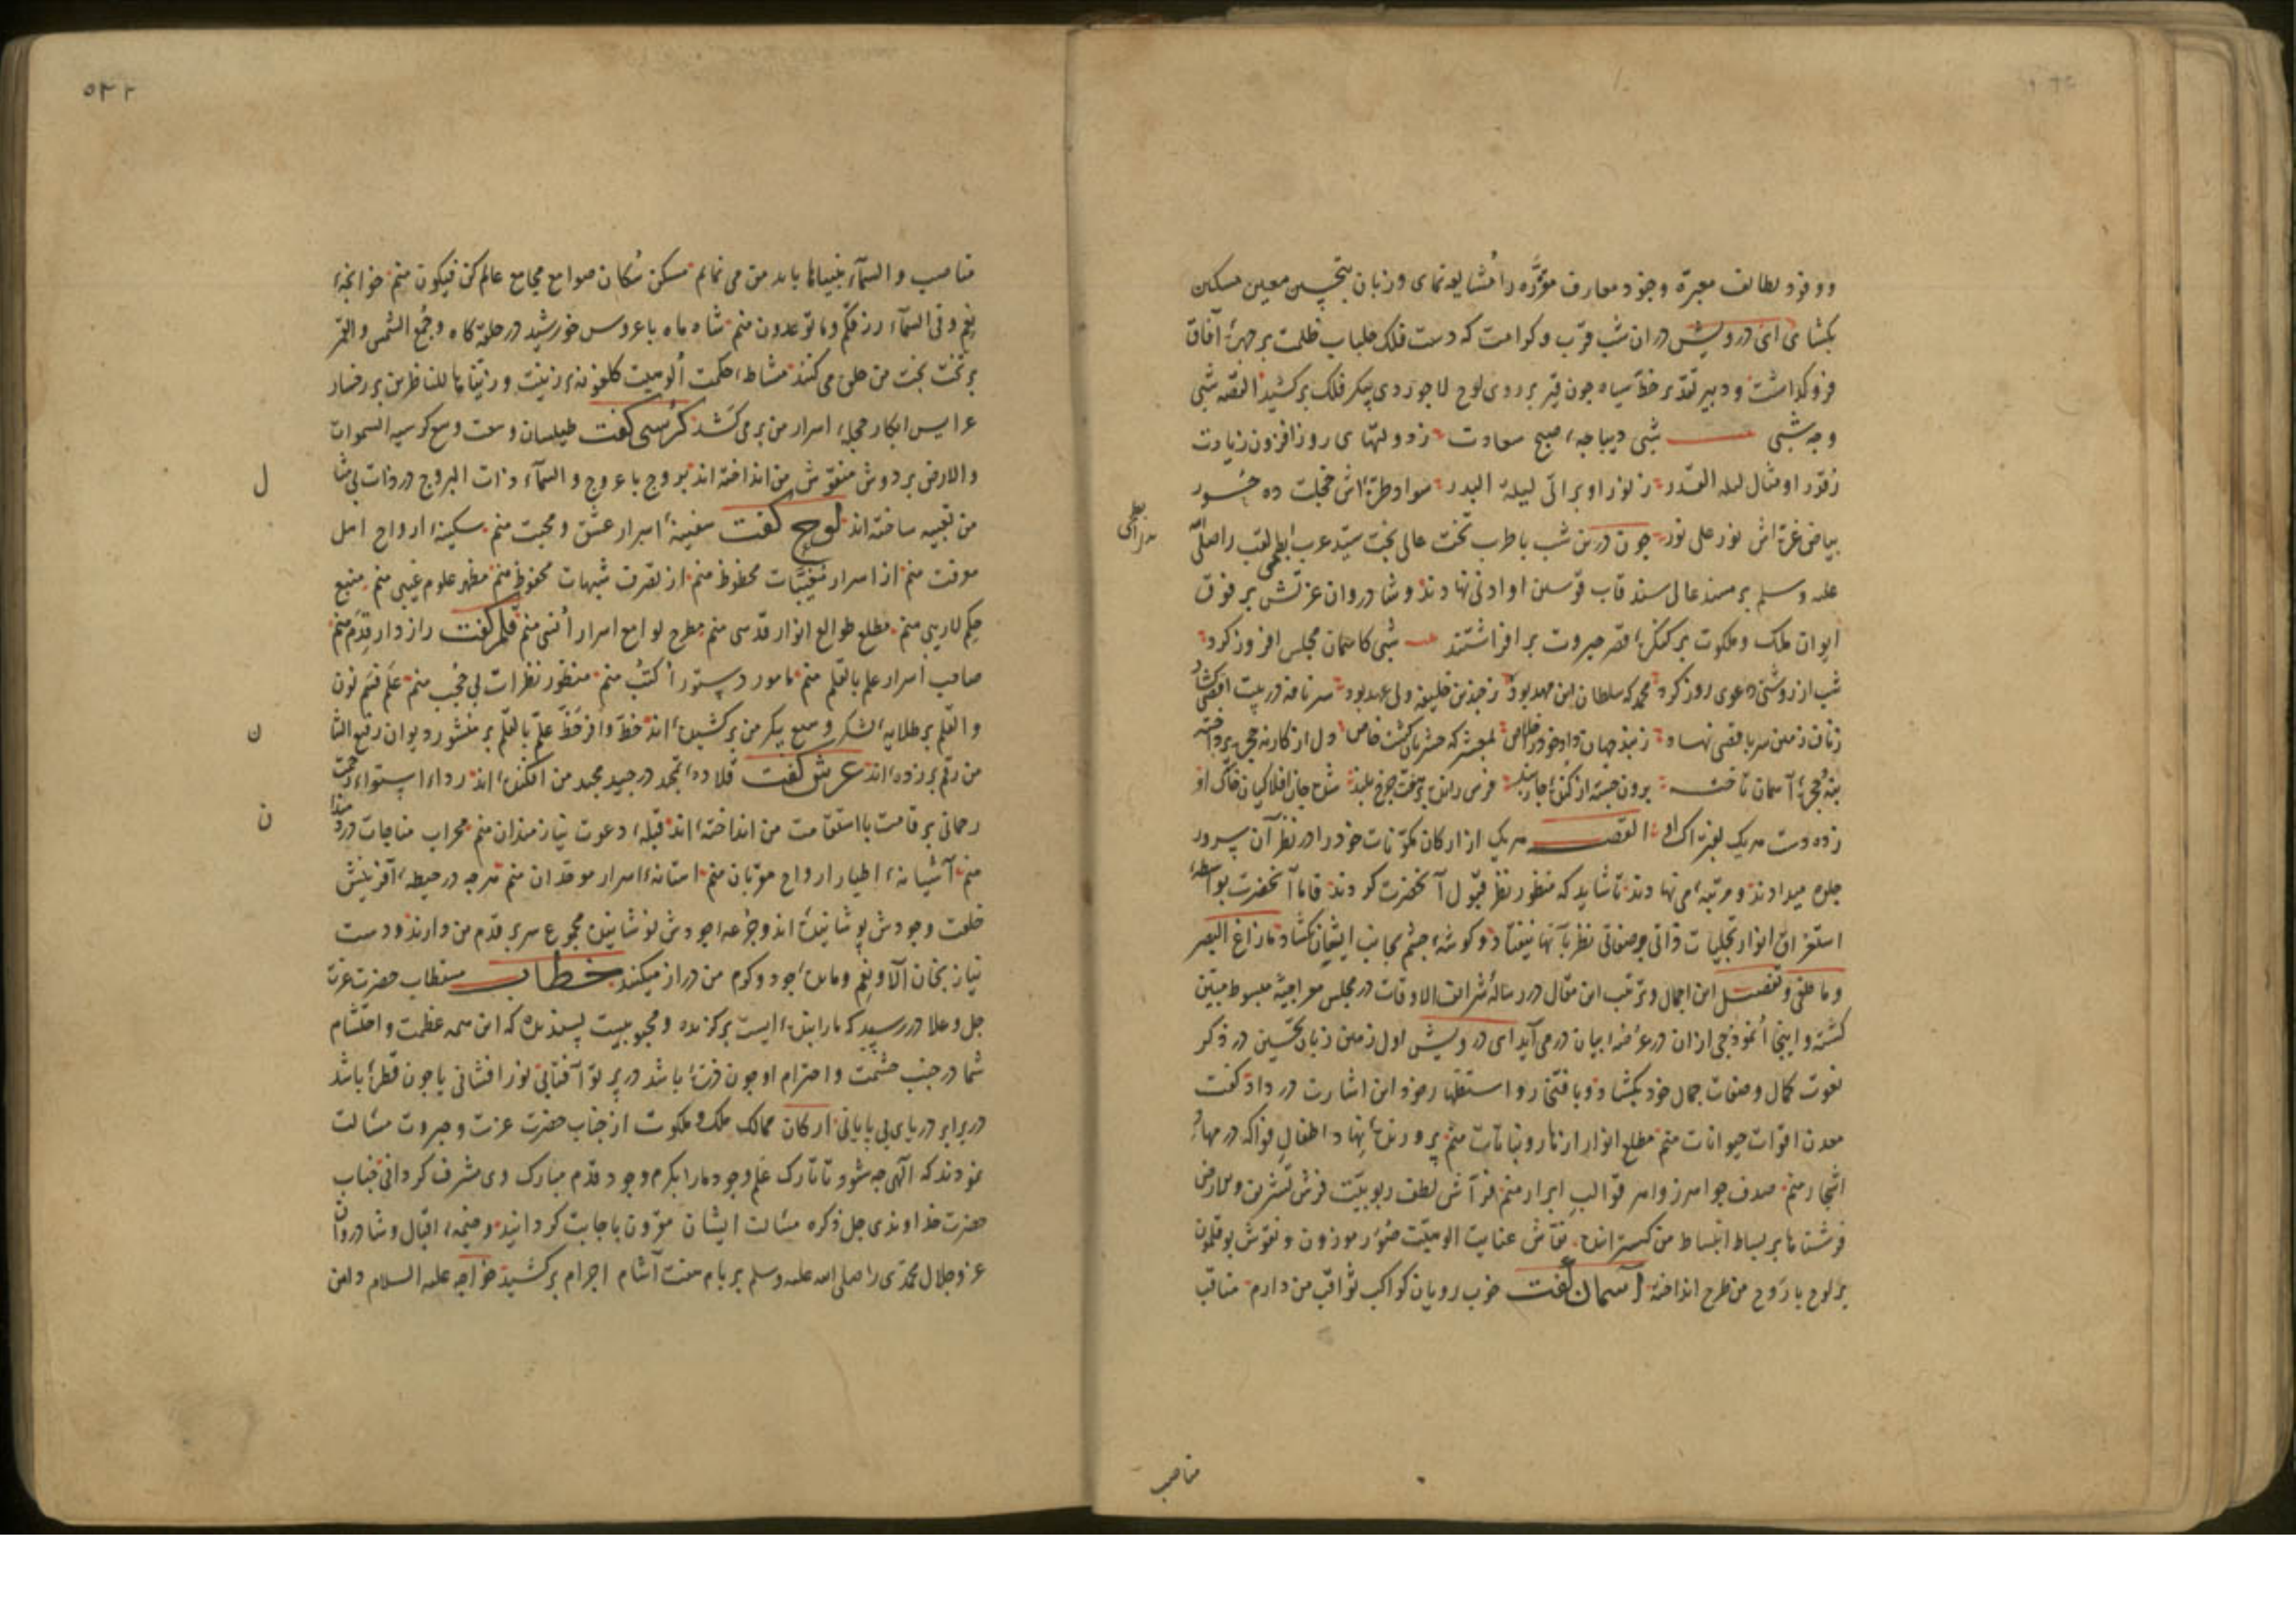 و وفود لطائف معبره وجود معارف موثره را مشایعه نمای و زبان بتحسین معین مسکین
بکشای ای درویش در ان شب قرب و کرامت که دست فلک جلباب ظلمت بر چهرهٔ آفاق
فرو کذاشت و دبیر تقدیر خط سیاه چون قیر بر روی لوح لاجوردی پیکر فلک برکشید القصه شبی
و چه شبی شبی دیباجهٔ صبح سعادت ز دولتهای روز افزون زیادت
ز قدر او مثال لیله القدر ز نور او براتی لیلة البدر سواد طرهٔ اش خجلت ده حور
بیاض غرهٔ اش نور علی نور چون درین شب با طرب تخت عالی بخت سید عرب ابطحی لقب را صلی الله
علیه و سلم بر مسند عالی سند قاب قوسین او ادنی نهادند و شادروان عزتش بر فوق
ایوان ملک و ملکوت بر کنکرهٔ قصر جبروت بر افراشتند شبی کاسمان مجلس افروز کرد
شب از روشنی دعوی روز کرد محمد که سلطان این مهد بود ز چندین خلیفه ولی عهد بود سر نافه در بیت اقصی کشاد
ز ناف زمین سر باقصی نهاد ز بند جهان داد خود را خلاص بمعشرکه عرشیان کشت خاص دل از کار نه حجره پرداخته
بنه حجرهٔ آسمان تاخته برون جسته از کنده چار بند فرس رانده بر هفت چرخ بلند
زده دست هر یک بفتراک او القصه هر یک از ارکان مکونات خود را در نظر آن سرور
جلوه میدادند و مرتبهٔ می نهادند تا شاید که منظور نظر قبول آنحضرت کردند فاما آنحضرت بواسطهٔ
استغراق انوار تجلیات ذاتی و صفاتی نظر بآنها نیفتاد و کوشهٔ چشم بجانب ایشان نکشاد ما زاغ البصر
و ما طغی و تفصیل این اجمال و ترتیب این مقال در رسالهٔ شرائف الاوقات در مجلس معراجیه مبسوط مبین
کشته و اینجا انموذجی از ان در عرضهٔ بیان در می آید ای درویش اول زمین زبان تحسین در ذکر
نعوت کمال و صفات جمال خود بکشاد و بافتخار و استظهار رمز و این اشارت در داد کفت
معدن اقوات حیوانات منم مطلع انوار ازهار و نباتات منم پرورندهٔ نهاد اطفال فواکه در مهاد
اشجار منم صدف جواهر زواهر قوالب ابرار منم فراش لطف ربوبیت فرش تشریف والارض
فرشناها بر بساط انبساط من کسترانده نقاش عنایت الوهیت صور موزون و نقوش بوقلمون
بر لوح با روح من طرح انداخته آسمان کفت خوب رویان کواکب ثواقب من دارم مناقب
مناصب
مناصب و السماء بنیناها باید من می نمایم مسکن سکان صوامع مجامع عالم کن فیکون منم خوانچهٔ
نعم و فی السماء رزقکم و ما توعدون منم شاه ماه با عروس خورشید در حله کاه و جمع الشمس و القمر
بر تخت بخت من جلی می کنند مشاطهٔ حکمت الوهیت کلغونهٔ زینت و زیناها للناظرین بر رخسار
عرایس ابکار حجلهٔ اسرار من بر می کشد کرسی کفت طیلسان وسعت وسع کرسیه السموات
والارض بر دوش منقوش من انداخته اند بروج با عروج و السماء ذات البروج در ذات بی مثا
ل
من تعبیه ساخته اند لوح کفت سفینهٔ اسرار عشق و محبت منم سکینهٔ ارواح اهل
معرفت منم از اسرار مغیبات محظوظ منم از تصرف شبهات محفوظ منم مظهر علوم غیبی منم منبع
حکم لاریبی منم مطلع طوالع انوار قدسی منم مطرح لوامع اسرار انسی منم قلم کفت رازدار قدم منم
صاحب اسرار علم بالقلم منم مامور دستور اکتب منم منظور نظرات بی حجب منم علم قسم نون
و القلم بر طلایهٔ لشکر وسیع پیکر من برکشیده اند خط وافر حظ علم بالقلم بر منشور دیوان رفیع الشا
ن
من رقم بر زده اند عرش کفت قلادهٔ تمجد در جید مجد من افکنده اند رداء استواء رحمت
رحمانی بر قامت با استقامت من انداخته اند قبلهٔ دعوت نیازمندان منم محراب مناجات دردمندا
ن
منم آشیانهٔ اطیار ارواح مقربان منم استانهٔ اسرار موحدان منم هرچه در حیطهٔ آفرینش
خلعت وجودش پوشانیده اند و جرعهٔ جودش نوشانیده مجموع سر بر قدم من دارند و دست
نیاز بخوان آلا و نعم و مایدهٔ جود و کرم من دراز میکنند خطاب مستطاب حضرت عزت
جل و علا در رسید که ما را بنده ایست برکزیده و محبوبیست پسندیده که این همه عظمت و احتشام
شما در جنب حشمت و احترام او چون ذرهٔ باشد در پرتو آفتابی نورافشانی یا چون قطرهٔ باشد
در برابر دریای بی پایانی ارکان ممالک ملک و ملکوت از جناب حضرت عزت و جبروت مسالت
نمودند که الهی چه شود تا تارک علم وجود ما را بکرم وجود قدم مبارک وی مشرف کردانی جناب
حضرت خداوندی جل ذکره مسالت ایشان مقرون باجابت کردانید و خیمهٔ اقبال و شادروان
عز و جلال محمدی را صلی الله علیه و سلم بر بام هفت آشام اجرام برکشید خواجه علیه السلام دامن